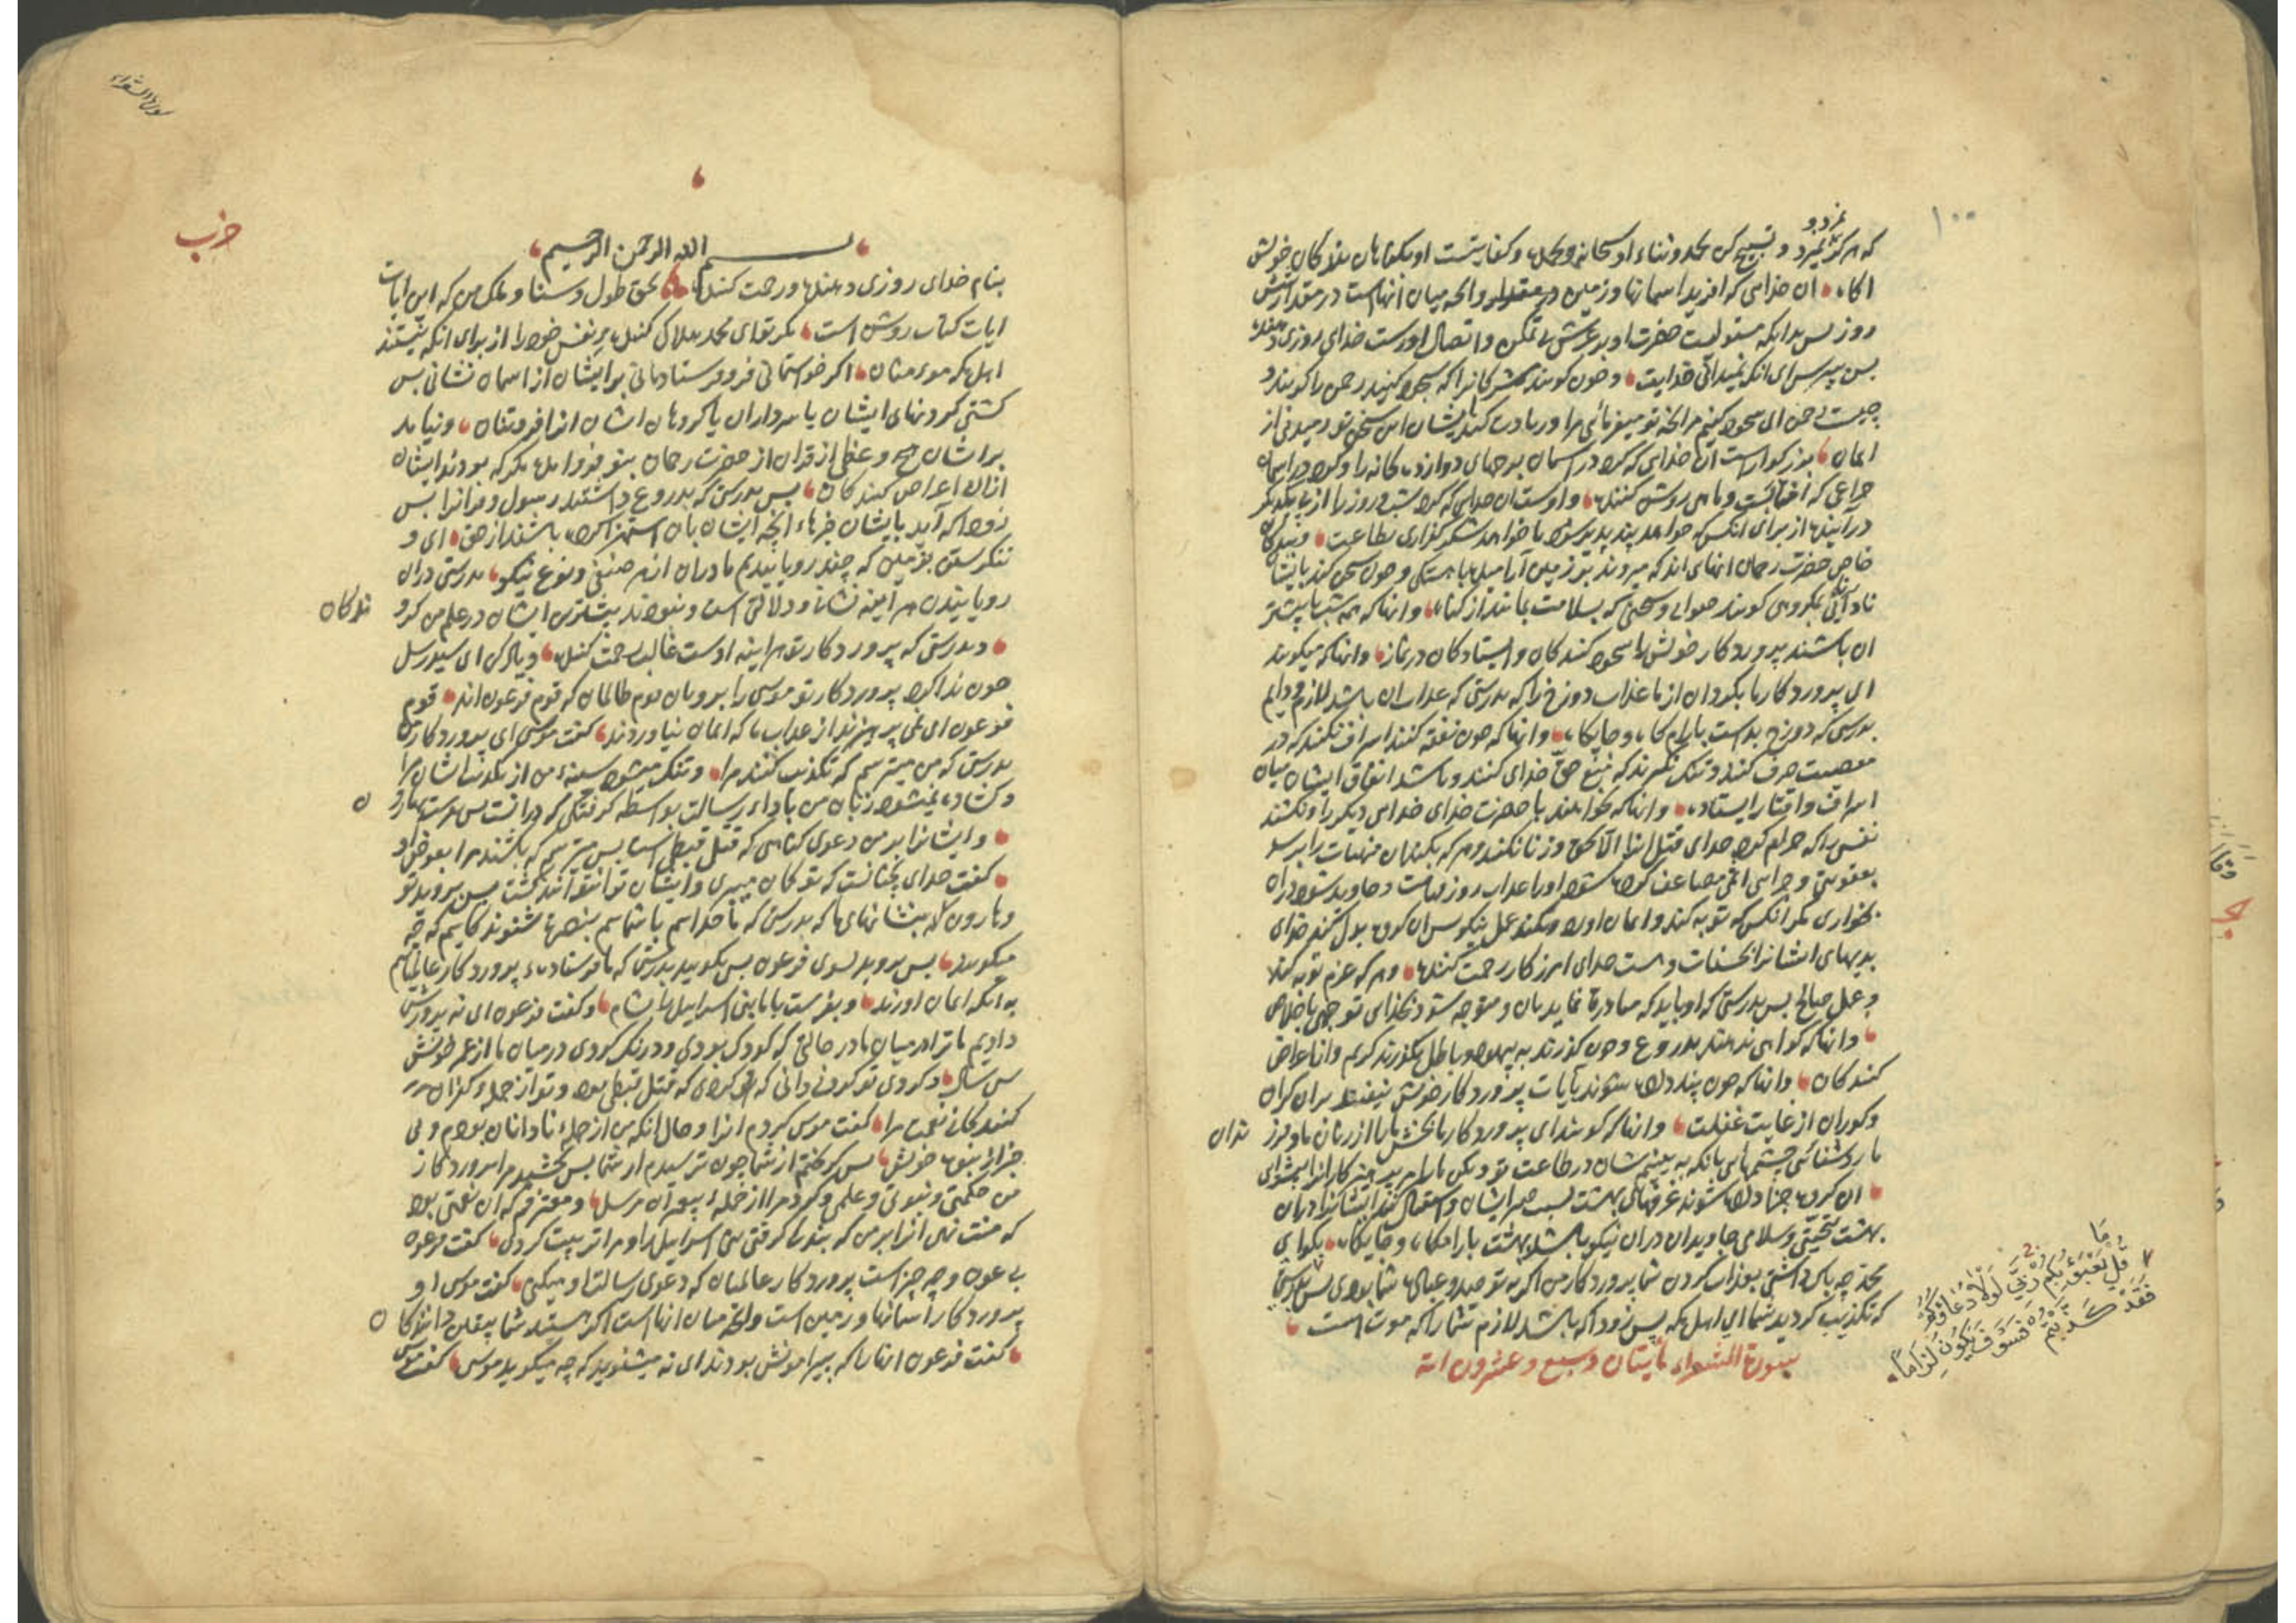 ۱۰۰
که هرگز نمیرد و تسبیح کن بحمد و ثناء او سبحانه و بحمده و کفایتست او بکناهان بندکان خویش
اکاه ان خدایی که افرید اسمانها و زمین و انچه میان انهاست در مقدار شش
روز پس بدانکه مستولیست حضرت او بر عرش خدای روزی دهنده
پس بپرس ای انکه نمیدانی خدایت و چون کویند مشرکانرا که سجده کنید رحمن را کویند و
چیست رحمن ای سجده کنیم مر انچه تو میفرمائی مرا و زیادت کند ایشان این سخن تو رمیدنی از
ایمان بزرکوار است ان خدای که کرد در اسمان برجهای دوازده کانه را و کرد در اسمان
چراغی که افتابست و ماهی روشن کننده و اوست ان خدایی که کرد شب و روز را از پی یکدیکر
دراینده از برای انکس که خواهد پند پذیر شود یا خواهد شکر کزاری بطاعت و بندکان
خاص حضرت رحمان انهای اند که میروند بر زمین ارامیده باهستکی و چون سخن کند بایشان
نادانی بکروهی کویند صوابی و سخنی که بسلامت بمانند از کناه و انها که همه شب با بیشتر
ان باشند پرورد کار خویش را سجده کنندکان و ایستادکان در نماز و انها که میکویند
ای پروردکار ما بکردان از ما عذاب دوزخ را که بدرستی که عذاب ان باشد لازم و دایم
بدرستی که دوزخ بد است بارامکاه و جایکاه و انها که چون نفقه کنند اسراف نکنند که در
معصیت صرف کنند و تنک نکیرند که منع حق خدای کنند و باشد انفاق ایشان میان
اسراف و اقتار ایستاده و انها که نخوانند با حضرت خدای خدای دیکر را و نکشند
نفسی را که حرام کرد خدای قتل انرا الا بحق و زنا نکنند و هر که بکند ان منهیات را برسد
بعقوبتی و جزایی اثمی مضاعف کرده شود او را عذاب روز قیامت و جاوید شود در ان
بخواری مکر انکس که توبه کند و ایمان اورد و بکند عمل نیکو پس ان کروه بدل کند خدای
بدیهای ایشانرا بحسنات و هست خدای امرزکار رحمت کننده و هر که عزم توبه کند
و عمل صالح پس بدرستی که او باید که مبادرة نماید بان و متوجه شود بخدای توجهی باخلاص
و انها که کواهی ندهند بدروع و چون کذرند به بیهوده و باطل بکذرند کریم وانا اعراض
کنندکان و انها که چون پند داده شوند بآیات پروردکار خویش نیفتند بران کران
و کوران از غایت غفلت و انها که کویند ای پروردکار ما ببخش ما را از زنان ما و فرز ندان
ما روشنائی چشمهای بانکه به بینیم شان در طاعت تو و بکن ما را مر پرهیزکارانرا پیشوای
ان کروه جزا داده شوند غرفهای بهشت بسبب صبر ایشان و استقبال کند ایشانرا دران
بهشت تحیتی و سلامی جاویدان دران نیکو باشد بهشت بارامکاه و جایکاه بکو ای
محمد چه باک داشتی بعذاب کردن شما پروردکار من اکر نه توحید و عبادت شما بودی پس بدرستی
که تکذیب کردید شما ای اهل مکه پس زود اکه باشد لازم شما را که موت است
سورة الشعراء مأیتان و سبع و عشرون ایة
قُلْ مَا يَعْبَؤُ بِكُمْ رَبِّي لَوْلَا دُعَاؤُكُمْ
فَقَدْ كَذَّبْتُمْ فَسَوْفَ يَكُونُ لِزَامًا
سورة الشعراء
حزب
بسم الله الرحمن الرحیم
بنام خدای روزی دهنده و رحمت کننده بحق طول و سنا و ملک من که این ایات
ایات کتاب روشن است مکر تو ای محمد هلاک کننده بر نفس خود را از برای انکه نیستند
اهل مکه مومنان اکر خواستمانی فرو فرستادمانی بر ایشان از اسمان نشانی پس
کشتی کردنهای ایشان یا سرداران یا کروهان ایشان انرا فروتنان و نیاید
بر ایشان هیچ وعظی از قران از حضرت رحمان بنو فرو امده مکر که بودند ایشان
ازان اعراض کنندکان پس بدرستی که بدروع داشتند رسول و قرانرا پس
زود اکه آید بایشان خبرهاء انچه ایشان بان استهزا کرده باشند از حق ای و
ننکرستن بزمین که چند رویانیدیم ما دران از هر صنفی و نوع نیکو بدرستی دران
رویانیدن هر آینه نشانه و دلالتی است و نبودند بیشترین ایشان در علم من کرو ندکان
و بدرستی که پروردکار تو هر اینه اوست غالب رحمت کننده و یاد کن ای سید رسل
چون ندا کرد پروردکار تو موسی را برو بان قوم ظالمان که قوم فرعون اند قوم
فرعون ای نمی پرهیزند از عذاب ما که ایمان نیاوردند کفت موسی ای پروردکار من
بدرستی که من میترسم که تکذیب کنند مرا و تنک میشود سینه من از تکذیب ایشان مرا
و کشاده نمیشود زبان من باداء رسالت بواسطه کرفتکی که درانست پس بفرست بهارو ن
و ایشانرا بر من دعوی کناهی که قتل قبطی است پس میترسم که بکشند مرا بعوض او
کفت خدای نچنانست که تو کمان میبری و ایشان ترا نتوانند کشت پس بروید تو
و هارون بنشانهای ما که بدرستی که ما خداییم با شما هم بنصرة شنوندکانیم که چه
میکویند پس بروید بسوی فرعون پس بکویید بدرستی که ما فرستاده پروردکار عالمیانیم
به انکه ایمان اورند و بفرست با ما بنی اسراییل را بشام و کفت فرعون ای نه پرورش
دادیم ما ترا در میان ما در حالتی که کودک بودی و درنک کردی در میان ما از عمر خویش
سی سال و کردی تو کردنی دانی که تو کردی که قتل قبطی بود و تو از جمله کفران
کنندکانی نعمت مرا کفت موسی کردم انرا و حال انکه من از جمله نادانان بودم و بی
خبران نبوت خویش پس کریختم از شما چون ترسیدم از شما پس بخشید مرا پروردکار
من حکمتی و نبوتی و علمی و کرد مرا از جمله پیغمبران مرسل و معترفم که ان نعمتی بود
که منت نهی انرا بر من که بنده کرفتی بنی اسراییل را و مرا تربیت کردی کفت فرعون
بی عون و چه چیز است پروردکار عالمیان که دعوی رسالت او میکنی کفت موسی او
پروردکار اسمانها و زمین است و انچه میان انهاست اکر هستید شما بیقین دانندکا ن
کفت فرعون انها را که پیرامونش بودند ای نه میشنوید که چه میکوید موسی کفت موسی